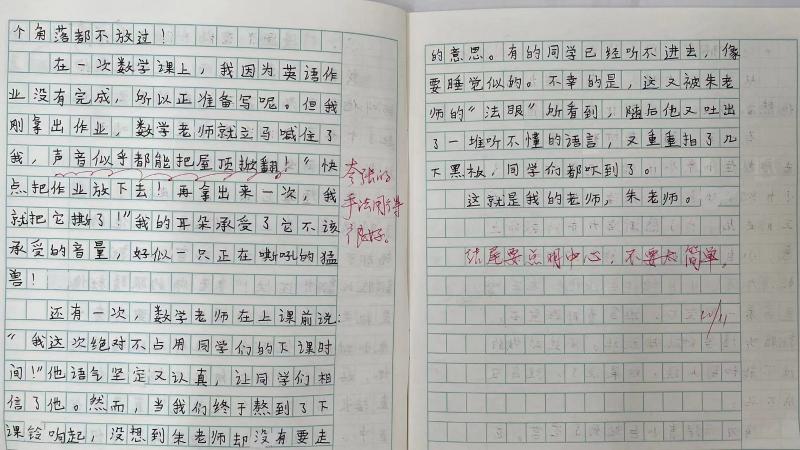 个角落都不放过！
在一次数学课上，我因为英语作
业没有完成，所以正准备写呢。但我
刚拿出作业，数学老师就立马喊住了
我，声音似乎都能把屋顶掀翻！“快
点把作业放下去！再拿出来一次，我
就把它撕了！”我的耳朵承受了它不该
承受的音量，好似一只正在嘶吼的猛
兽！
还有一次，数学老师在上课前说：
“我这次绝对不占用同学们的下课时
间！”他语气坚定又认真，让同学们相
信了他。然而，当我们终于熬到了下
课铃响起，没想到朱老师却没有要走
夸张的
手法用得
很好。
的意思。有的同学已经听不进去，像
要睡觉似的。不幸的是，这又被朱老
师的“法眼”所看到，随后他又吐出
了一堆听不懂的语言，又重重拍了几
下黑板，同学们都吓到了。
这就是我的老师，朱老师。
结尾要点明中心，不要太简单。